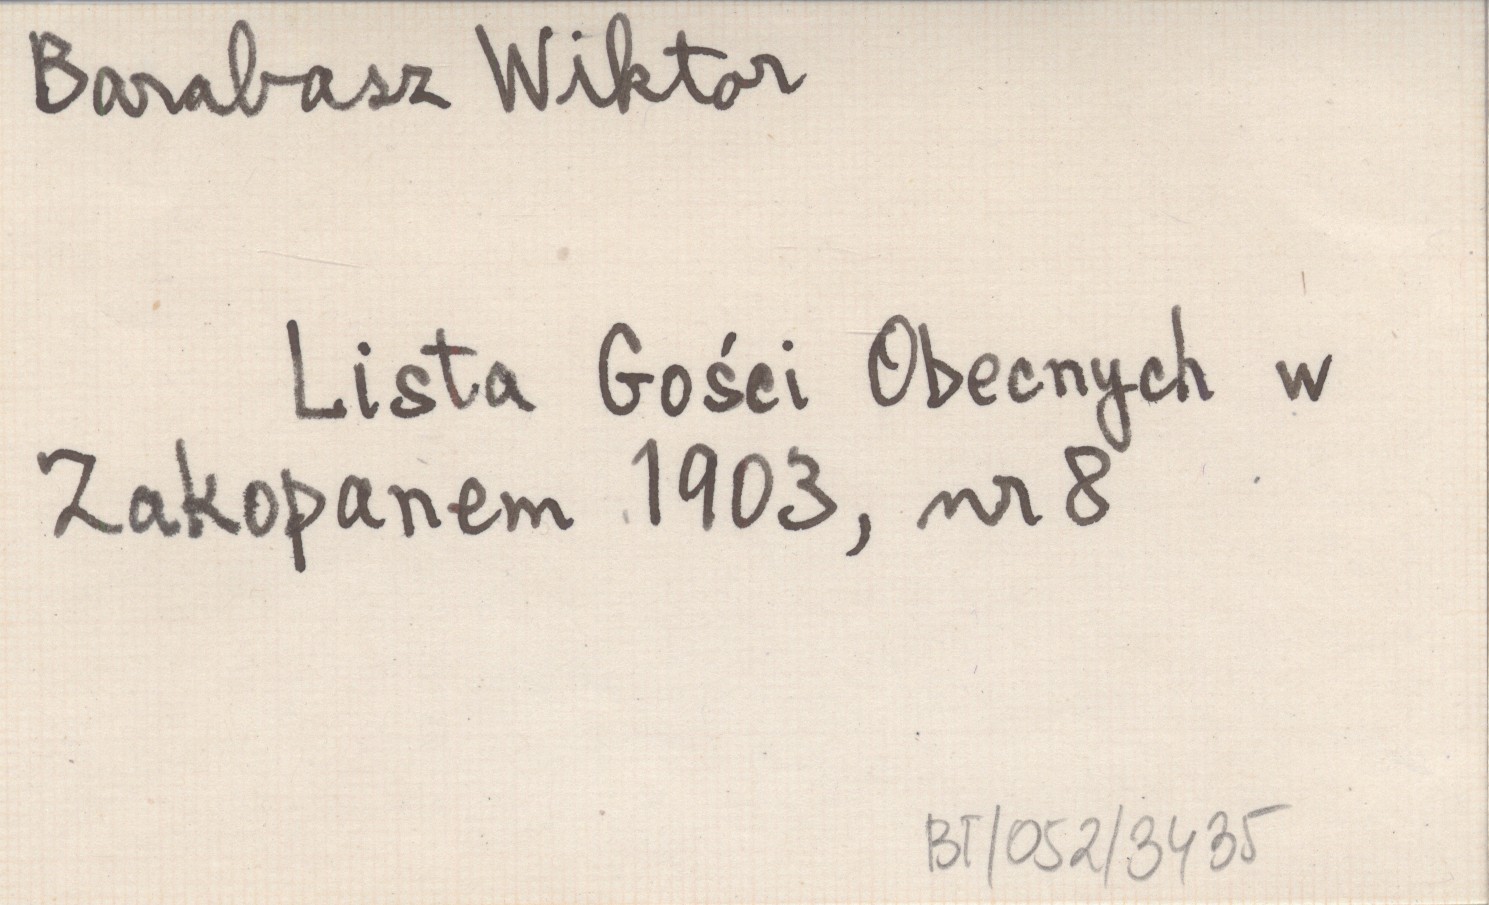 Barabasz Wiktor
Lista Gości Obecnych w
Zakopanem 1903, nr 8
BT/052/3435